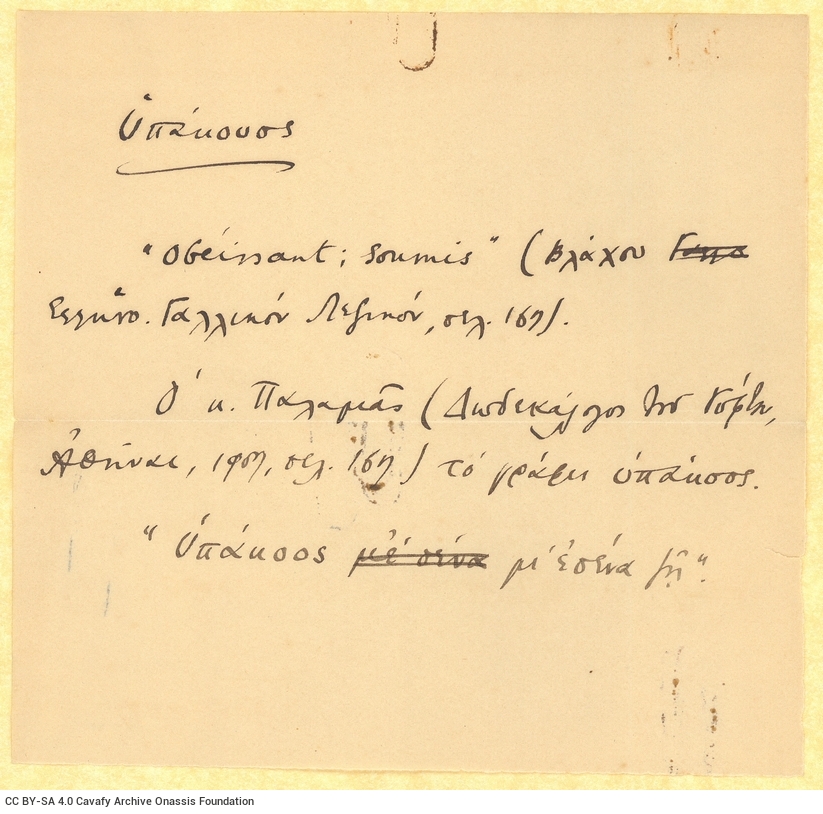 Ὑπάκουος
"obéissant; soumis" (Βλάχου
Ἑλληνο. Γαλλικόν Λεξικόν, σελ.
Ὁ κ. Παλαμᾶς (Δωδεκάλογος τοῦ Γύφτου,
Ἀθῆναι, σελ. ) τό γράφει ὑπάκοος.
"Ὑπάκοος μέ σένα μ' ἐσένα ζῇ".
CC BY-SA 4.0 Cavafy Archive Onassis Foundation